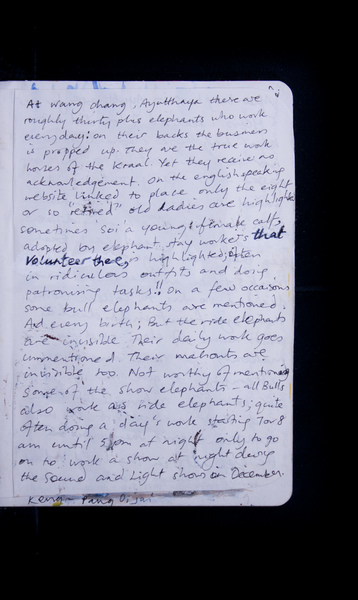 At Wang Chang, Ayutthaya there are
roughly thirty plus elephants who work
everyday: on their backs the business
is propped up. They are the true work
horses of the Kraal. Yet they receive no
acknowledgement. On the english speaking
website linked to place only the eight
or so "retired" old ladies are highlighted
sometimes Soi a young female calf,
adopted by elephant stay workers that
volunteer there, is highlighted; often
in ridiculous outfits and doing
patronising tasks!! On a few occasions
some bull elephants are mentioned.
And every birth; But the ride elephants
are invisible. Their daily work goes
unmentioned. Their mahouts are
invisible too. Not worthy of mentioning
Some of the show elephants - all Bulls
also work as ride elephants; quite
often doing a day's work starting 7 or 8
am until 5pm at night only to go
on to work a show at night during
the Sound and Light show in December.
Pang